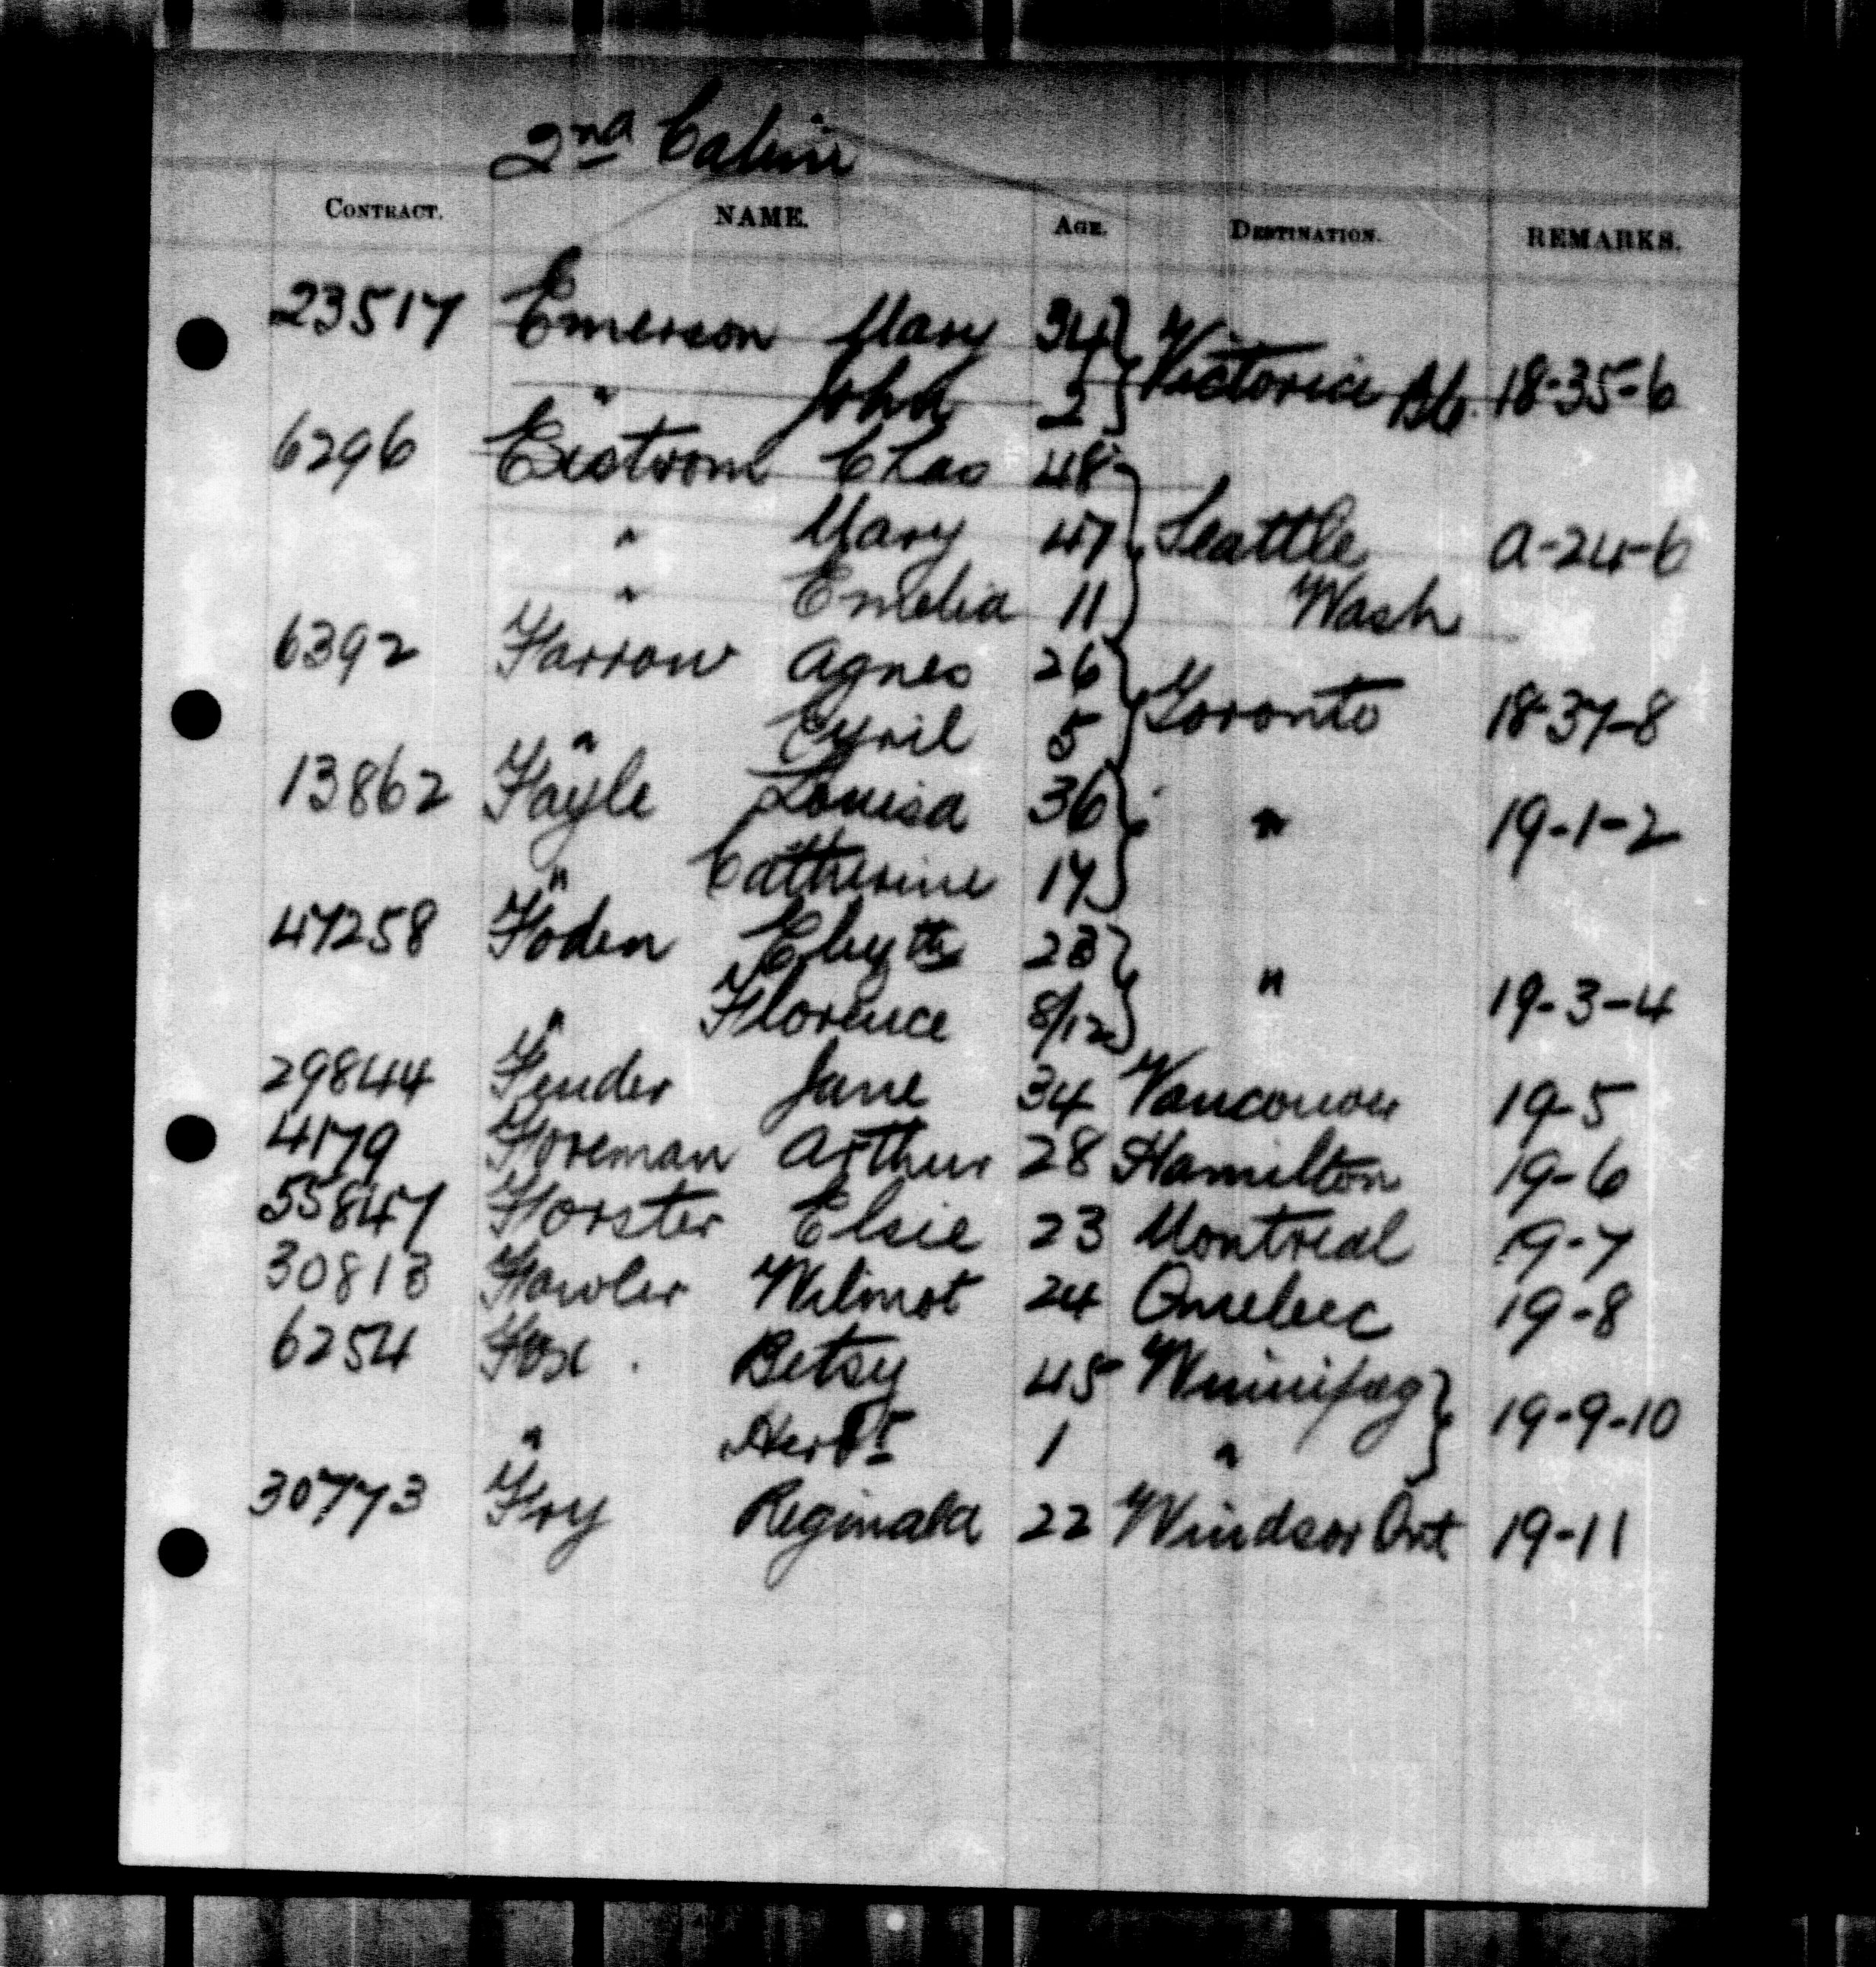 2nd Cabin
CONTRACT. NAME. AGE. DESTINATION. REMARKS.
23517 Emerson Mary 34 Victoria B.C. 18-35-6
" John 2
6296 Exstrom Chas 48
" Mary 47 Seattle a-24-6
" Emelia 11 Wash
6392 Farrow Agnes 26 Toronto 18-37-8
" Cyril 5
13862 Fayle Louisa 36 " 19-1-2
" Catherine 17
47258 Foden 23 "
" Florence 8/12 19-3-4
29844 Fender Jane 34 Vancouver 19-5
4179 Foreman Arthur 28 Hamilton 19-6
55847 Forster Elsie 23 Montreal 19-7
30813 Fowler Wilmot 24 Quebec 19-8
6254 Fox Betsy 45 Winnipeg 19-9-10
" Herbt 1 "
30773 Fry Reginald 22 Windsor Ont 19-11